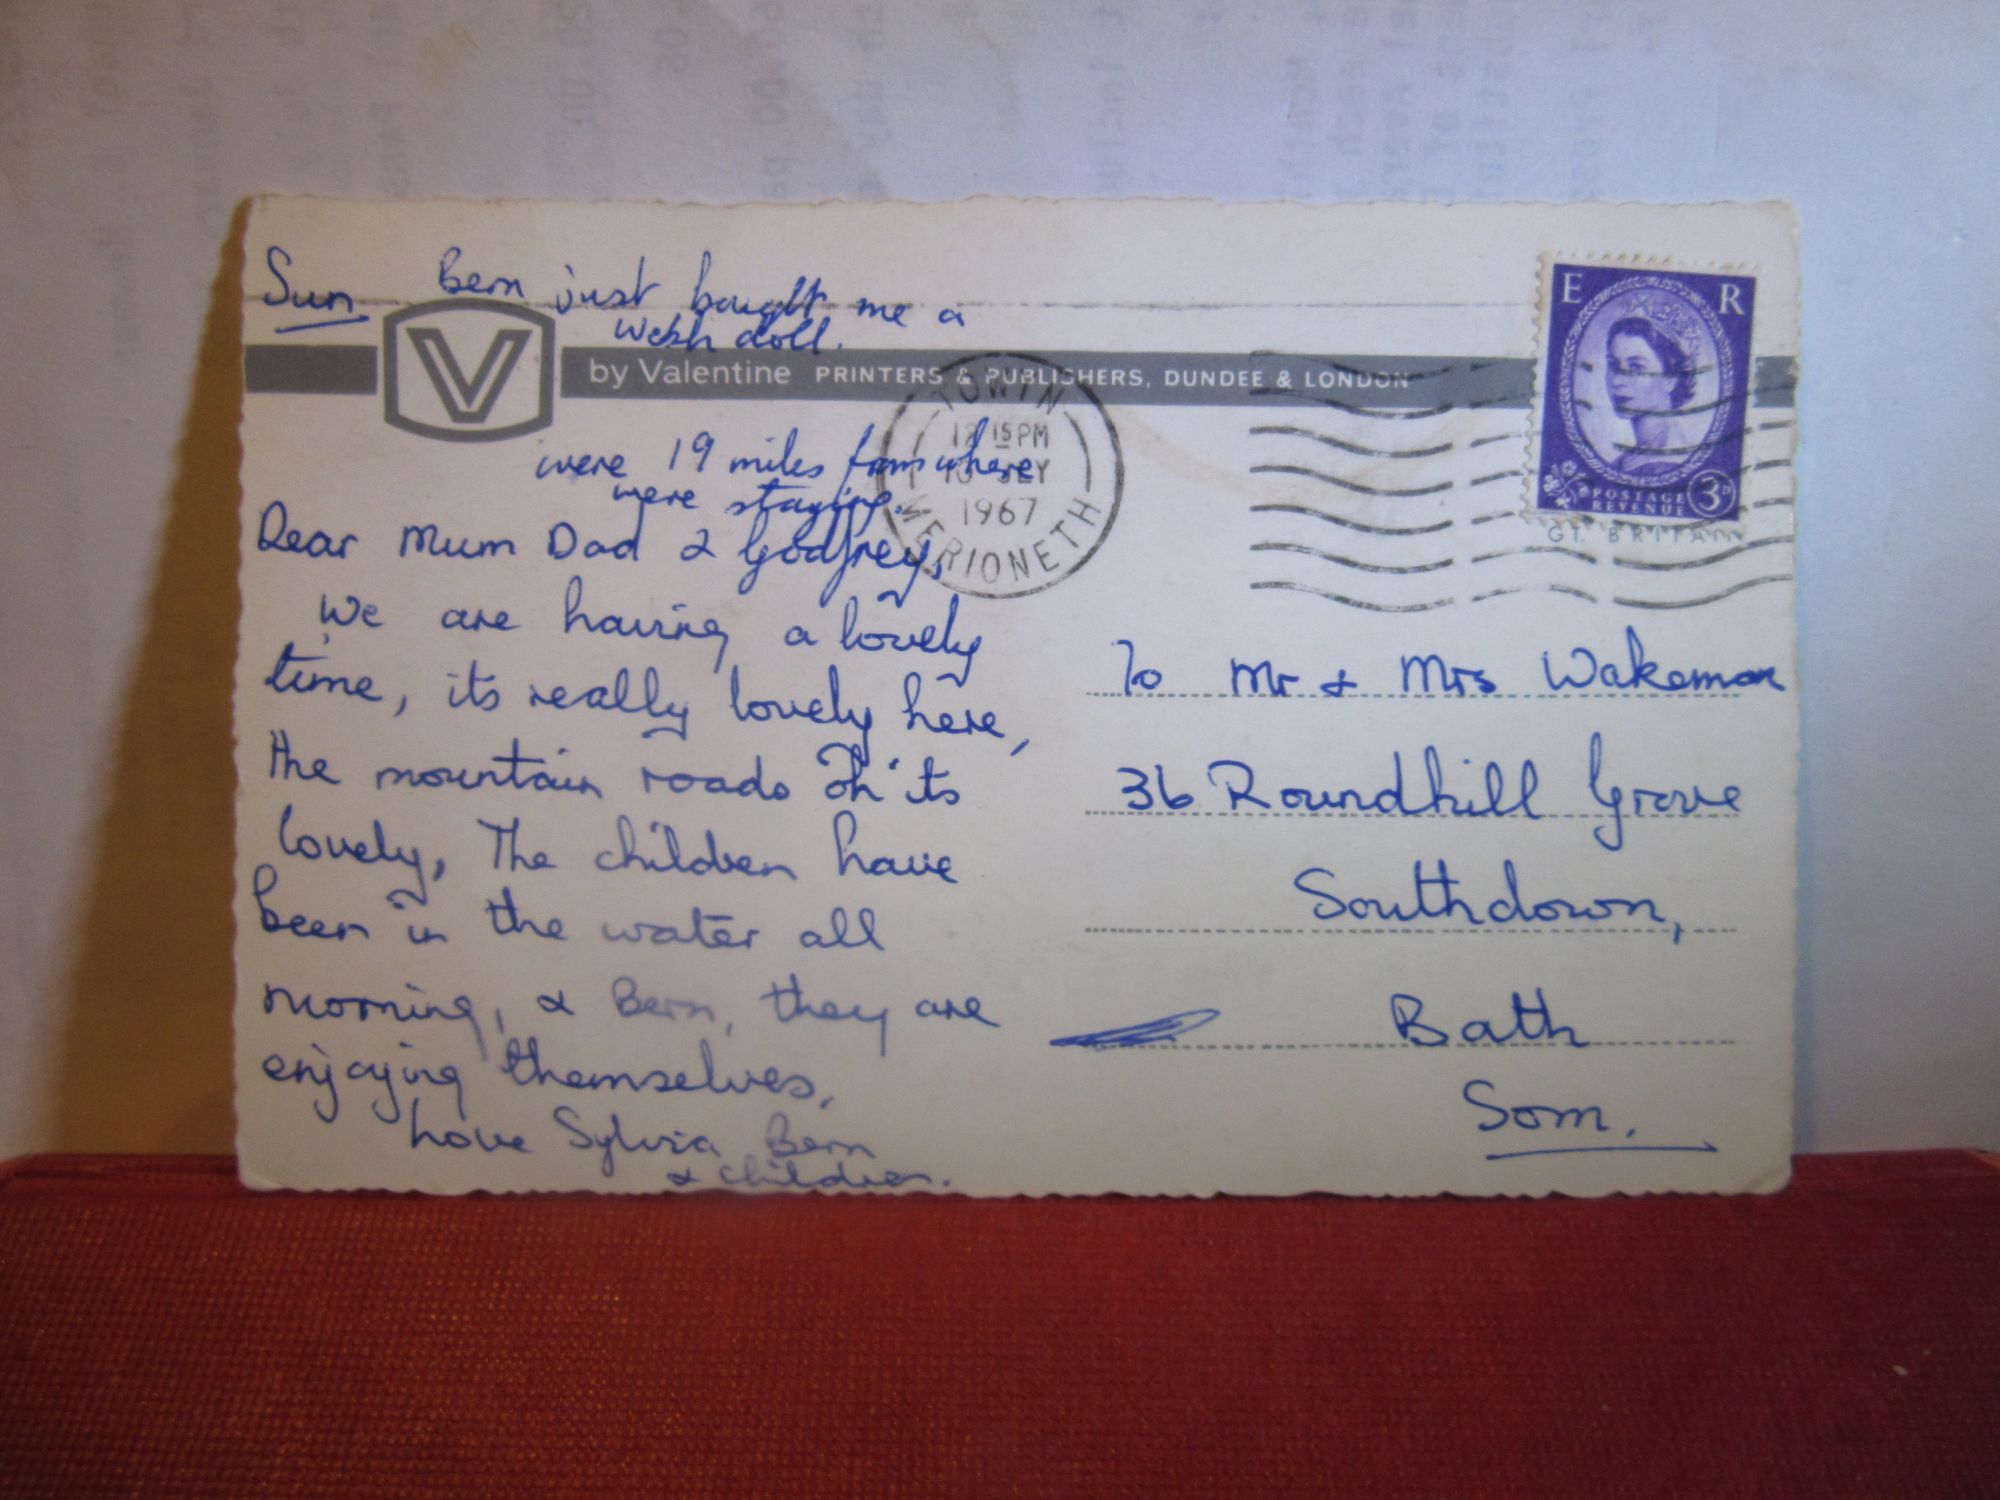 Sun
Bern just bought me a
Welsh doll.
E R
V
by Valentine PRINTERS & PUBLISHERS, DUNDEE & LONDON
TOWYN
12 15 PM
1967
MERIONETH
POSTAGE
REVENUE
3D
GT. BRITAIN
were 19 miles from where
were staying.
Dear Mum Dad & Godfrey,
We are having a lovely
time, its really lovely here,
the mountain roads oh its
lovely, The children have
been in the water all
morning, & Bern, they are
enjoying themselves,
Love Sylvia Bern
& children.
To Mr & Mrs Wakeman
36 Roundhill Grove
Southdown,
Bath
Som.